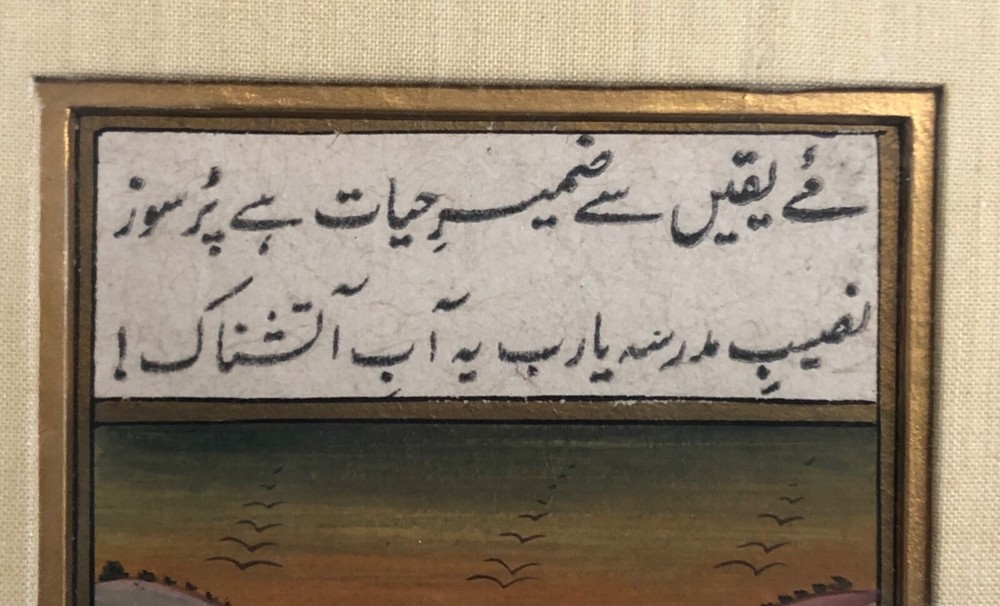 مۓ یقیں سے ضمیرِ حیات ہے پُرسوز
نصیبِ مدرسہ یارب یہ آبِ آتشناک!